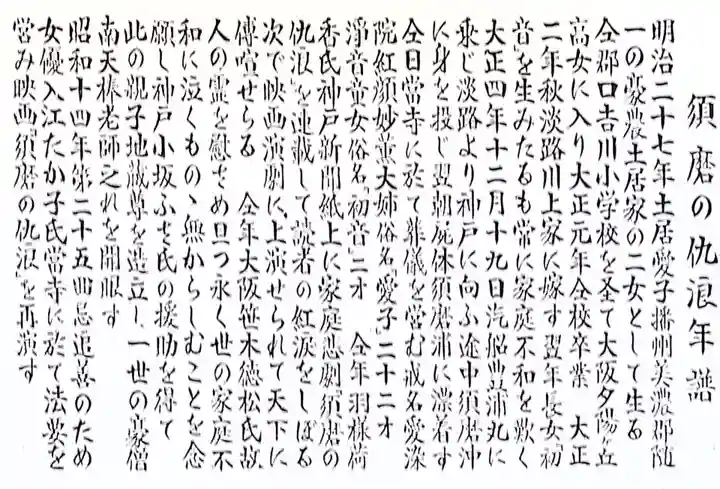 須磨の仇浪年譜
明治二十七年土居愛子播州美濃郡随
一の豪農土居家の二女として生る
仝郡口吉川小学校を圣て大阪夕陽ヶ丘
高女に入り大正元年仝校卒業 大正
二年秋淡路川上家に嫁す翌年長女「初
音」を生みたるも常に家庭不和を歎く
大正四年十二月十九日汽船豊浦丸に
乗じ淡路より神戸に向ふ途中須磨沖
に身を投じ翌朝屍体須磨浦に漂着す
仝日當寺に於て葬儀を営む戒名愛染
院紅顔妙薫大姉俗名「愛子」二十二才
淨音童女俗名「初音」二才 仝年羽様荷
香氏神戸新聞紙上に家庭悲劇「須磨の
仇浪」を連載して読者の紅涙をしぼる
次で映画演劇に、上演せられて天下に
傳噲せらる 仝年大阪笹木徳松氏故
人の霊を慰さめ旦つ永く世の家庭不
和に泣くものゝ無からしむことを念
願し神戸小坂ふさ氏の援助を得て
此の親子地蔵尊を造立し、一世の豪僧
南天棒老師之れを開眼す
昭和十四年第二十五回忌追善のため
女優入江たか子氏當寺に於て法要を
営み映画「須磨の仇浪」を再演す